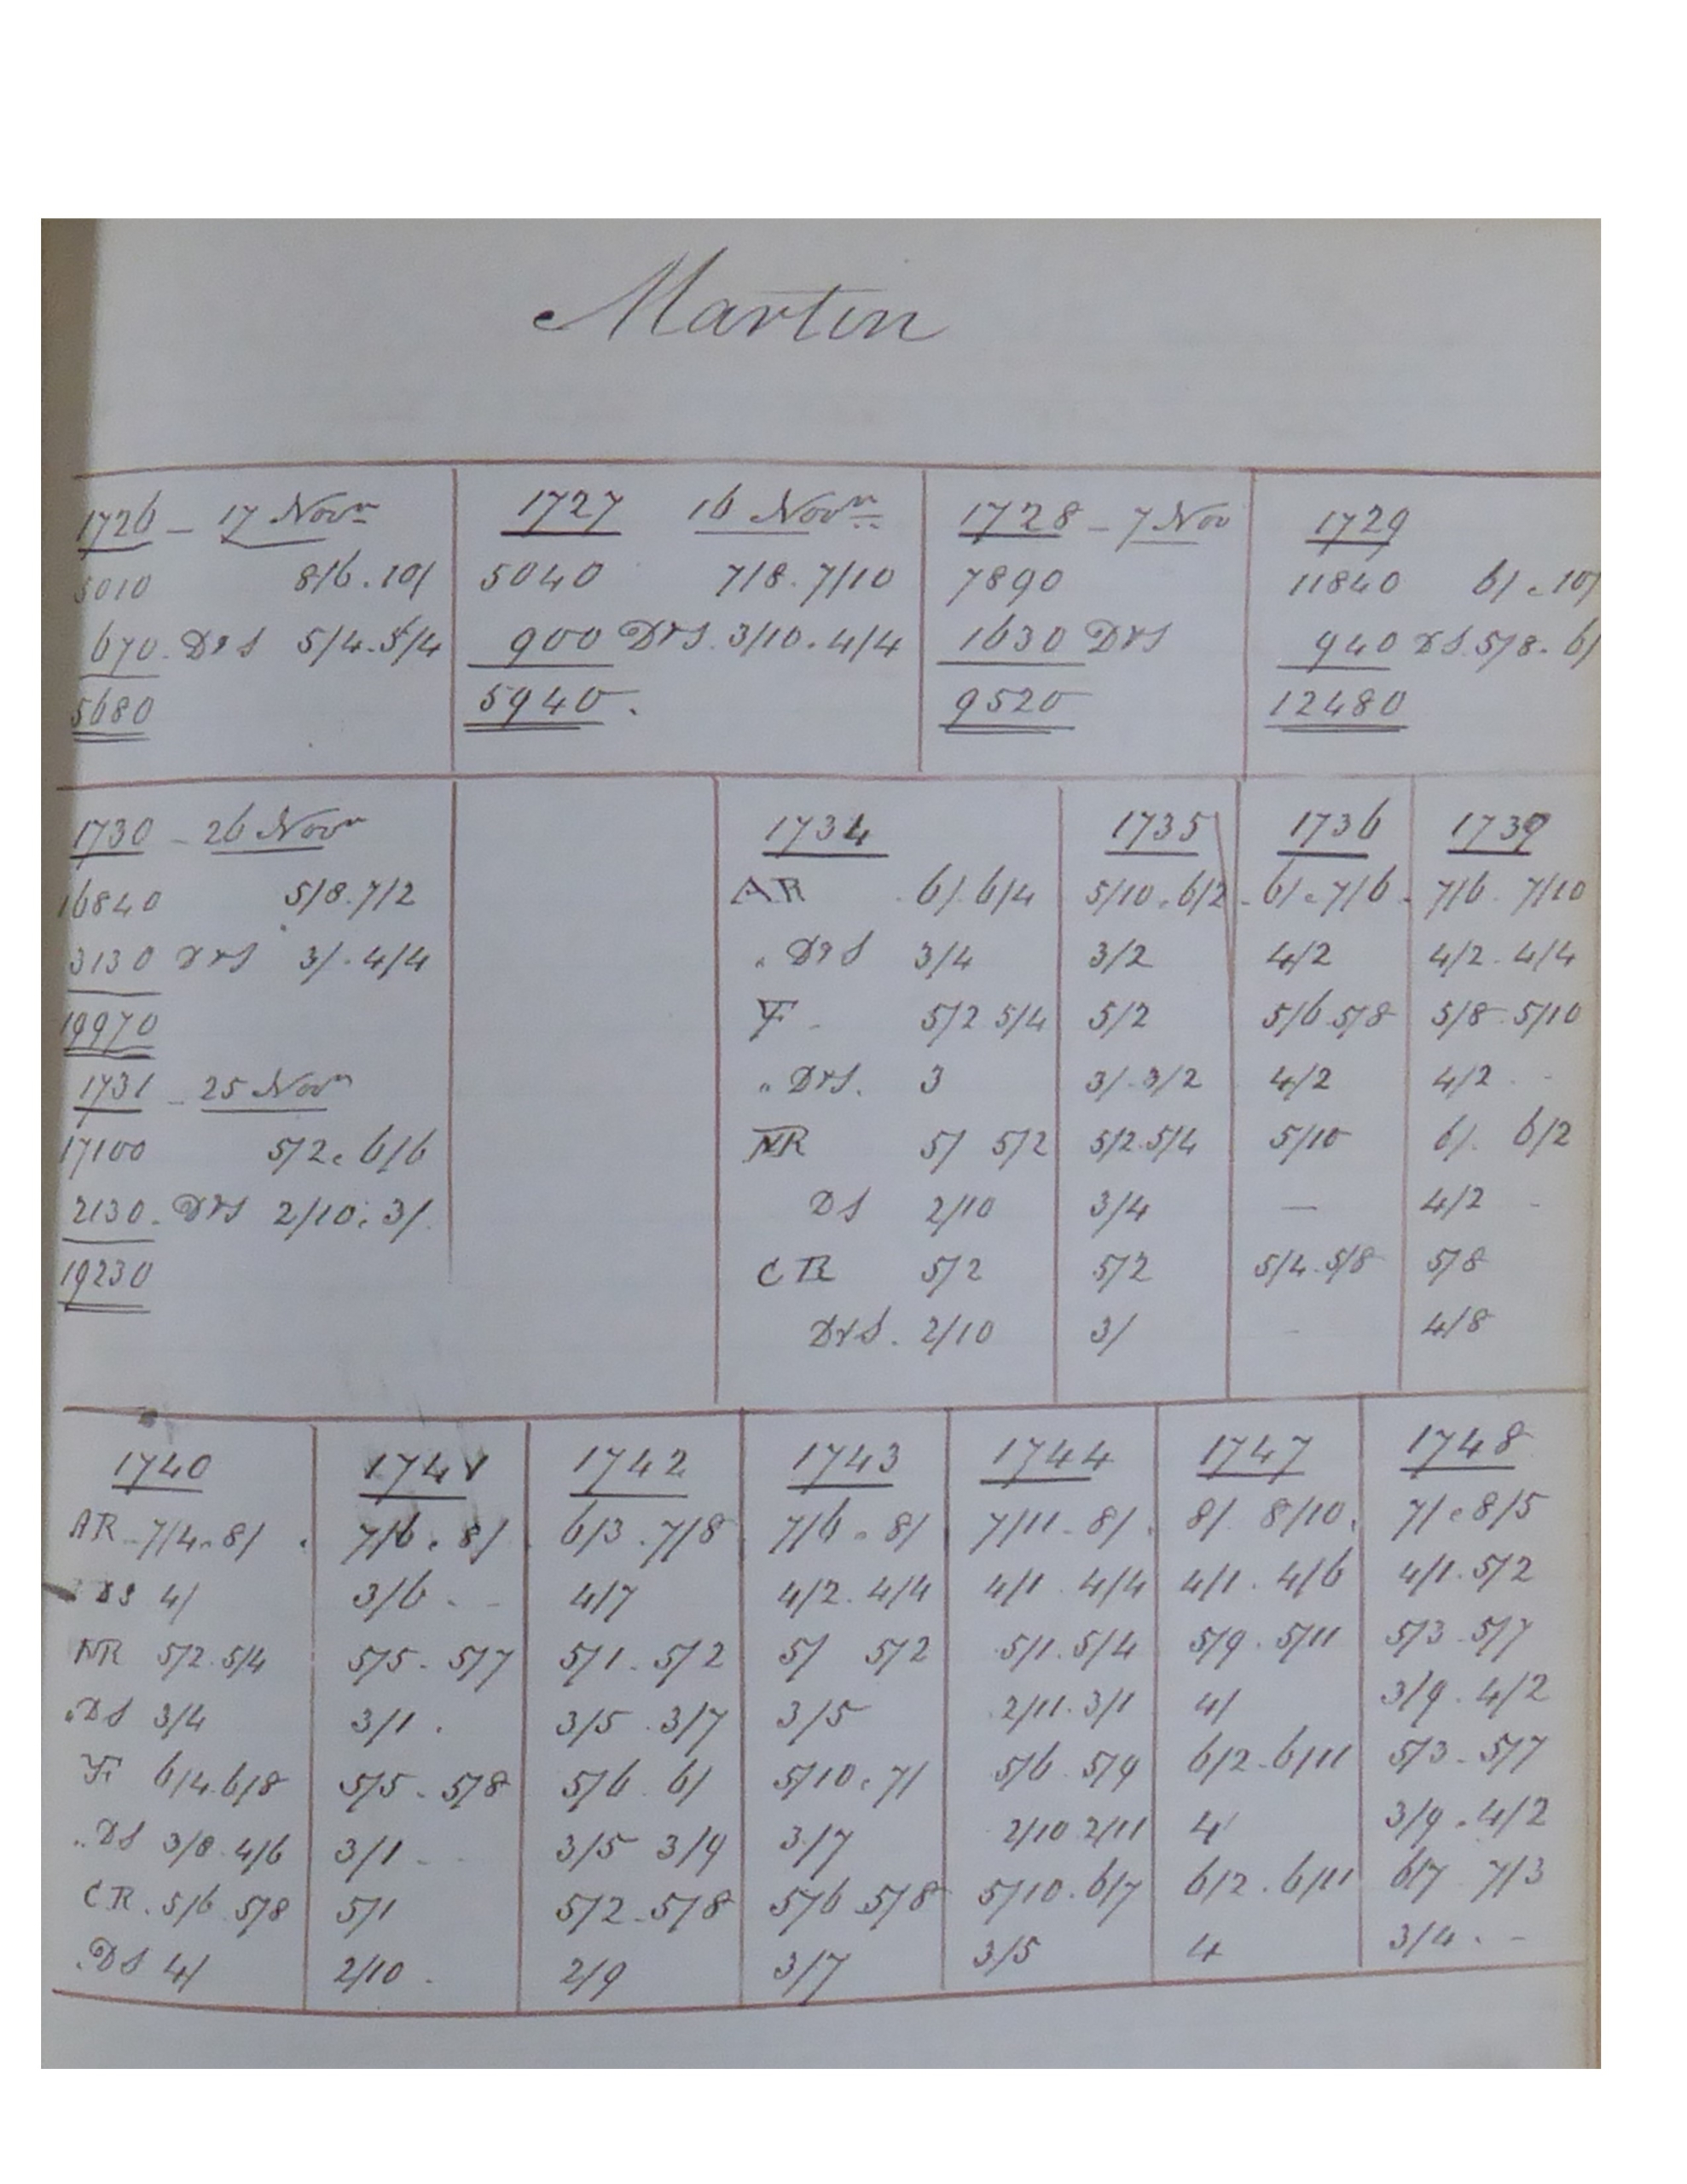 Martin
1726 – 17 Novr
5010 8/6 . 10/
670 . DrS 5/4 . 5/4
5680
1727 16 Novr
5040 7/8 . 7/10
900 DrS . 3/10 . 4/4
5940 .
1728 – 7 Nov
7890
1630 DrS
9520
1729
11840 6/ . 10/
940 DS . 5/8 . 6/
12480
1730 – 26 Novr
16840 5/8 . 7/2
3130 DrS 3/ . 4/4
19970
1731 – 25 Novr
17100 5/2 . 6/6
2130 . DrS 2/10 . 3/.
19230
1734 1735 1736 1739
AR 6/ . 6/4 5/10 . 6/2 6/ . 7/6 7/6 . 7/10
" DrS 3/4 3/2 4/2 4/2 . 4/4
F 5/2 5/4 5/2 5/6 . 5/8 5/8 . 5/10
" DrS . 3 3/ . 3/2 4/2 4/2 . -
NR 5/ 5/2 5/2 . 5/4 5/10 6/ . 6/2
DS 2/10 3/4 — 4/2 -
CR 5/2 5/2 5/4 . 5/8 5/8
DrS . 2/10 3/ - 4/8
1740 1741 1742 1743 1744 1747 1748
AR . 7/4 . 8/ 7/6 . 8/ 6/3 . 7/8 7/6 . 8/ 7/11 . 8/ 8/ 8/10 7/ . 8/5
" DS 4/ 3/6 . - 4/7 4/2 . 4/4 4/1 . 4/4 4/1 . 4/6 4/1 . 5/2
NR 5/2 . 5/4 5/5 . 5/7 5/1 . 5/2 5/ 5/2 5/1 . 5/4 5/9 . 5/11 5/3 . 5/7
" DS 3/4 3/1 . 3/5 . 3/7 3/5 2/11 . 3/1 4/ 3/9 . 4/2
F 6/4 . 6/8 5/5 . 5/8 5/6 . 6/ 5/10 . 7/ 5/6 . 5/9 6/2 . 6/11 5/3 . 5/7
" DS 3/8 . 4/6 3/1 . - 3/5 3/9 3/7 2/10 2/11 4/ 3/9 . 4/2
CR . 5/6 . 5/8 5/1 5/2 . 5/8 5/6 . 5/8 5/10 . 6/7 6/2 . 6/11 6/7 . 7/3
" DS 4/ 2/10 . 2/9 3/7 3/5 4 3/4 . -